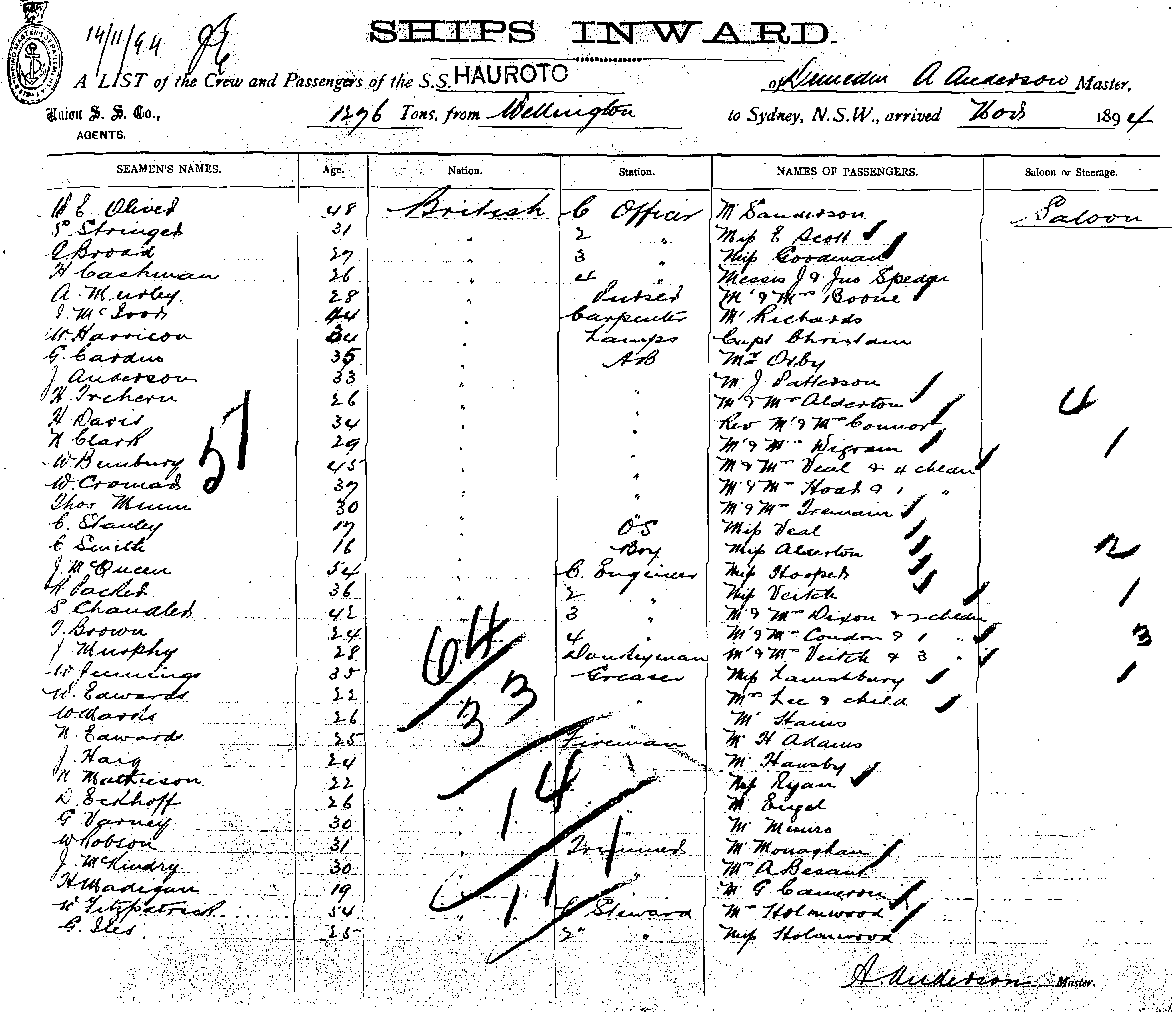 14/11/94
SHIPS INWARD.
A LIST of the Crew and Passengers of the S.S. HAUROTO of Dunedin A Anderson Master,
Union S. S. Co., AGENTS. 1276 Tons, from Wellington to Sydney, N.S.W., arrived Nov 1894
SEAMEN'S NAMES. Age. Nation. Station. NAMES OF PASSENGERS. Saloon or Steerage.
Oliver 48 British C Officer Mr Sanderson Saloon
S Stringer 31 " 2 " Miss E Scott
Broad 27 " 3 " Miss Goodman
H Cashman 26 " 4 " Messrs J & Jno
A. 28 " Purser Mr & Mrs Boone
44 " Carpenter Mr Richards
W. Harrison " Lamps Capt
G. Cardno 35 " AB Mrs Oxby
J Anderson 33 " " Mr J. Patterson
H Trehern 26 " " Mr & Mrs Alderton 4
H Davis 34 " " Rev Mr & Mrs Connor
N Clark 29 " " Mr & Mrs Wigram 1
W Bunbury 45 " " Mr & Mrs Veal & 4 children
W. 37 " " Mr & Mrs Hoad & 1 "
Thos Munn 30 " " Mr & Mrs Iremain
C. Stanley 17 " OS Miss Veal
C Smith 16 " Boy Miss Alderton 2
J. McQueen 54 " C. Engineer Miss Hooper
36 " 2 " Miss Veitch 1
S Chandler 42 " 3 " Mr & Mrs Dixon & 2 children
Brown 24 " 4 " Mr & Mrs Condon & 1 " 3
J Murphy 28 " Donkeyman Mr & Mrs Veitch & 3 "
W Jennings 35 " Greaser Miss 1
Edwards 22 " " Mrs Lee & child
W Harris 26 " " Mr
N. Edwards 25 " Fireman Mr H Adams
J. Haig 24 " " Mr Hansby
Mathieson 22 " " Miss Ryan
D. Eckhoff 26 " " Mr Engel
G Varney 30 " " Mr Munro
W Robson 31 " Trimmer Mr Monaghan
J. McKindry 30 " " Mrs A Besant
H Madigan 19 " " Mr G Cameron
W Fitzpatrick 54 " C Steward Mrs Holmwood
G. Iles. 25 " 2 " Miss Holmwood
57
64
33
14
111
A. Anderson Master.